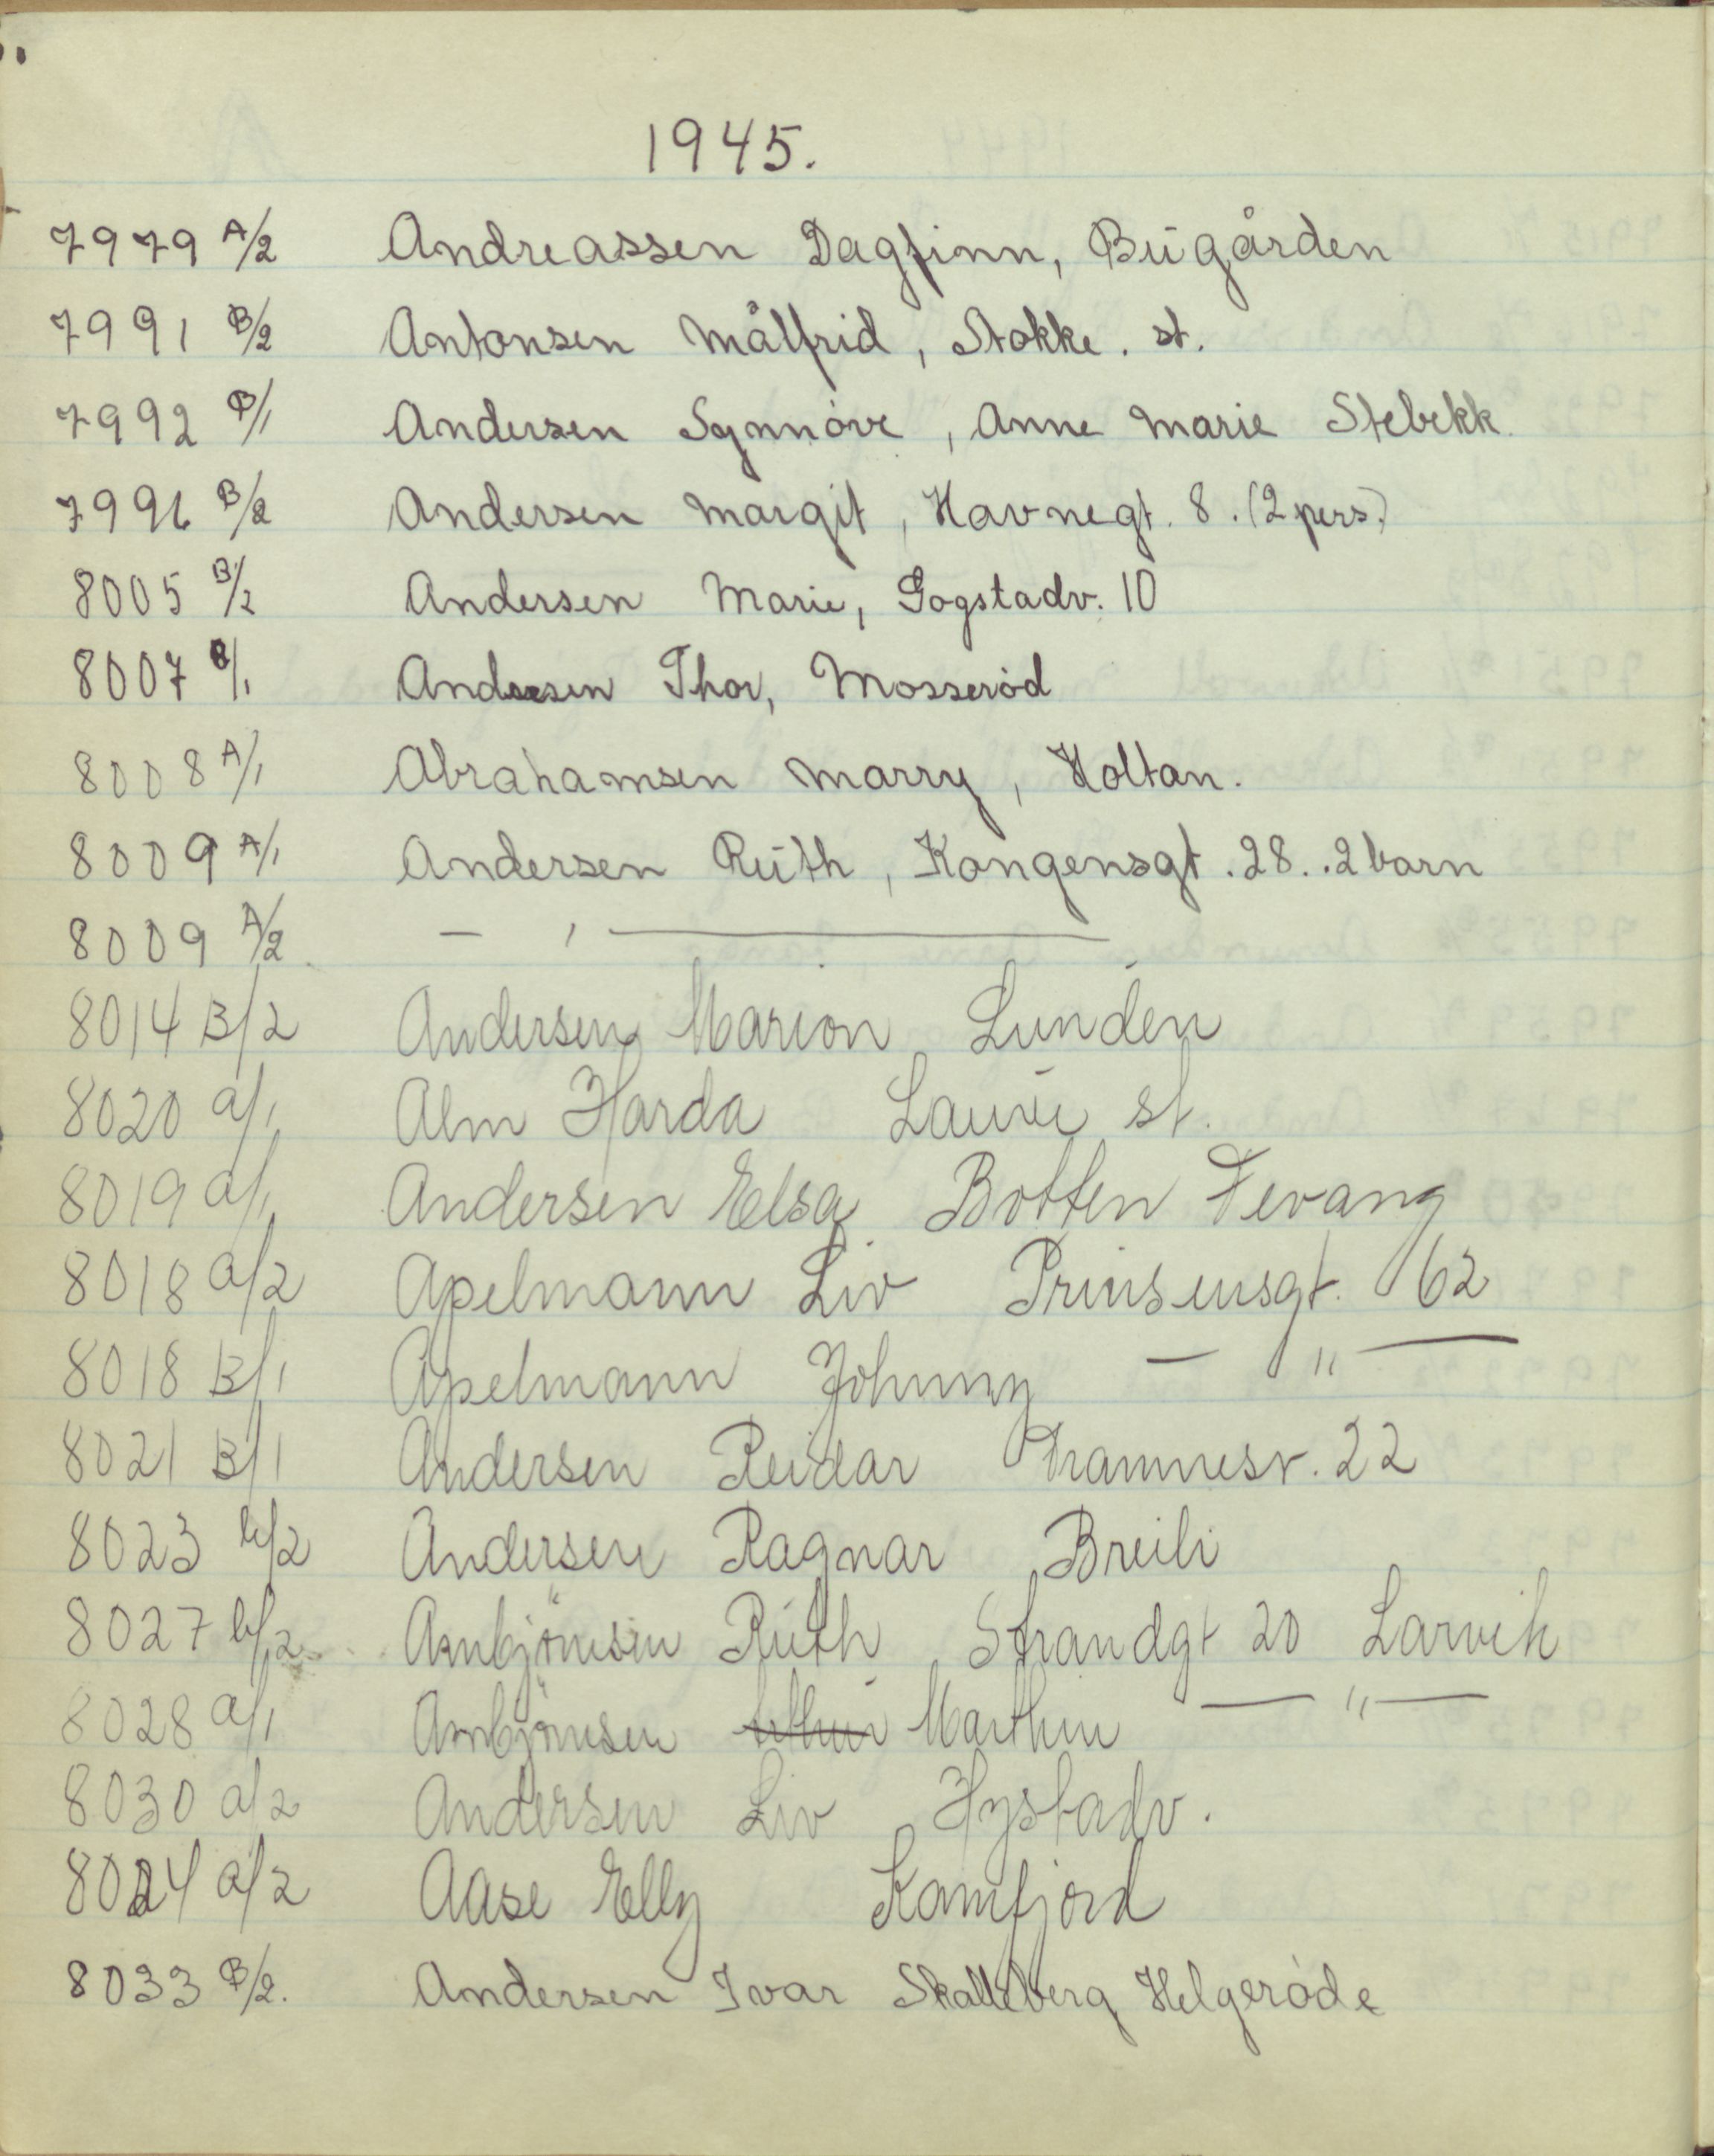 1945.
7979 A/2 Andreassen Dagfinn, Bugården
7991 B/2 Antonsen Målfrid, Stokke. st.
7992 B/1 Andersen Synnóve, Anne Marie Stebekk.
7996 B/2 Andersen Margit, Havnegt. 8. (2 pers.)
8005 B/2 Andersen Marie, Gogstadv. 10
8007 B/1 Andersen Thor, Mosseród
8008 A/1 Abrahamsen Marry, Holtan.
8009 A/1 Andersen Ruth, Kongensgt. 28. . 2 barn
8009 A/2 — , —
8014 B/2 Andersen Marion Lunden
8020 a/1 Alm Harda Lauve st.
8019 a/1 Andersen Elsa Botten Tevang
8018 a/2 Apelmann Liv Prinsensgt. 62
8018 B/1 Apelmann Johnny — " —
8021 B/1 Andersen Reidar Framnesv. 22
8023 b/2 Andersen Ragnar Breili
8027 b/2 Ambjörnsen Ruth Strandgt 20 Larvik
8028 a/1 Ambjörnsen Marthin — " —
8030 a/2 Andersen Liv Hystadv.
8024 a/2 Aase Elly Kamfjord
8033 B/2. Andersen Ivar Skalleberg Helgeróde